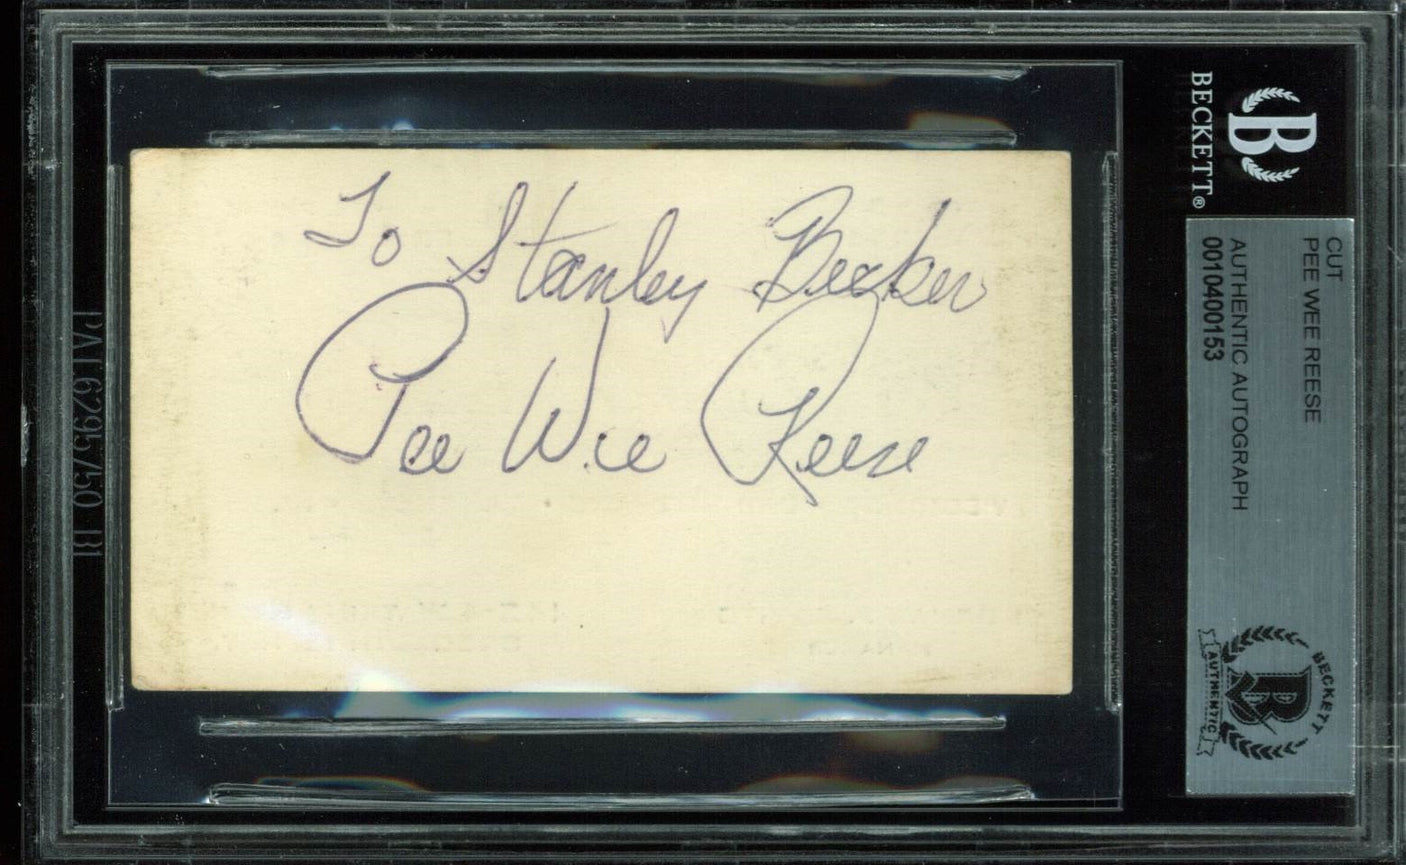 To Stanley Becker
Pee Wee Reese
BECKETT®
CUT
PEE WEE REESE
AUTHENTIC AUTOGRAPH
0010400153
BECKETT
AUTHENTIC